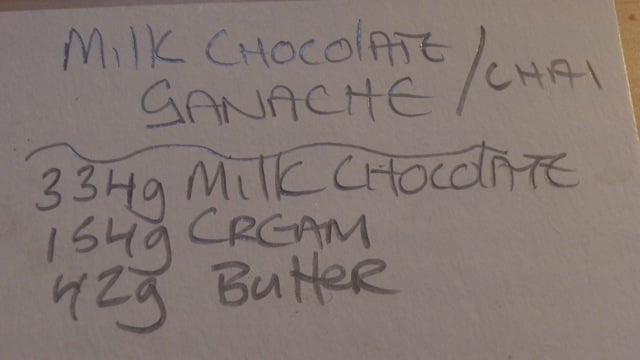 MilK CHOCOlATE
GANACHE / CHAI
334g MilK CHOCOlATE
154g CREAM
42g ButteR